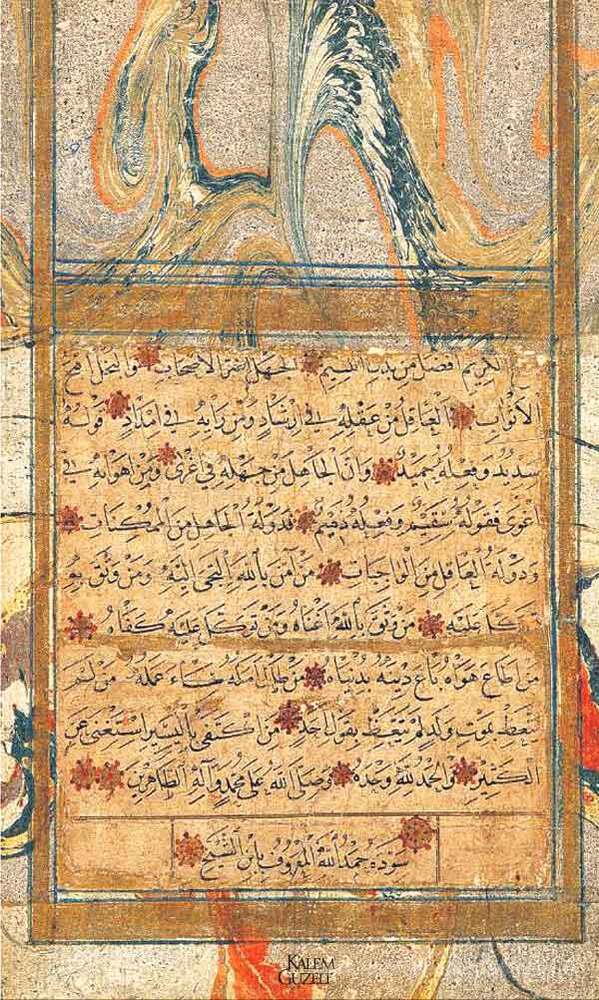 الكريم أفضل من بدن السقيم الجهل أضر الأصحاب والبخل أقبح
الأثواب العاقل من عقله في إرشاد ومن رأيه في إمداد فوله
سديد وفعله حميد وان الجاهل من جهله في أغرى ومن أهوائه في
أغوى فقوله سقيم وفعله ذميم فدولة الجاهل من الممكنات
ودولة العاقل من الواجبات من آمن بالله التجى إليه ومن وثق به
توكل عليه من وثق بالله أغناه ومن توكل عليه كفاه
من اطاع هواه باع دينه بدنياه من طال امله ساء عمله من لم
يتعظ بموت ولد لم يتعظ بقول احد من اكتفى باليسير استغنى عن
الكثير والحمد لله وحده وصلى الله على محمد وآله الطاهرين
سوده حمد الله المعروف بابن الشيخ
KALEM
GÜZELİ